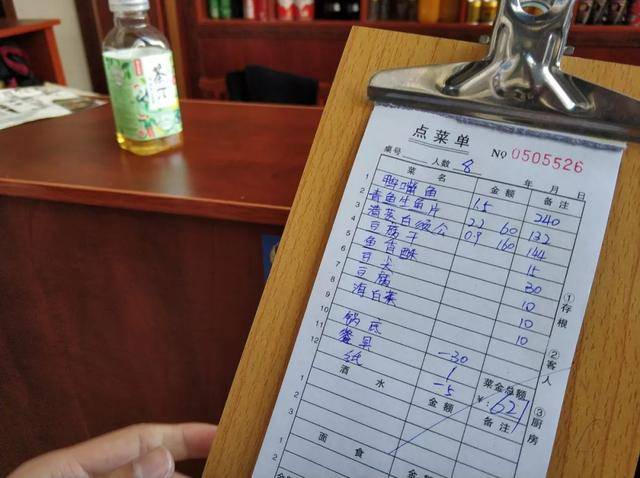 点菜单
№ 0505526
桌号 人数 8 年 月 日
菜 名 金 额 备 注
1 鸭嘴鱼 1.5 240
2 青鱼生鱼片 2.2 60 132
3 清蒸白须公 0.9 160 144
4 豆腐干 15
5 鱼香酥 30
6 豆 10
7 豆腐 10
8 海白菜 10
9
10 锅底 -30
11 餐具 1
12 纸 -5
菜金总额
¥: 621
酒 水 金 额 备 注
1
2
3
面 食 金 额 备 注
1
2
①存根
②客人
③厨房
茶π